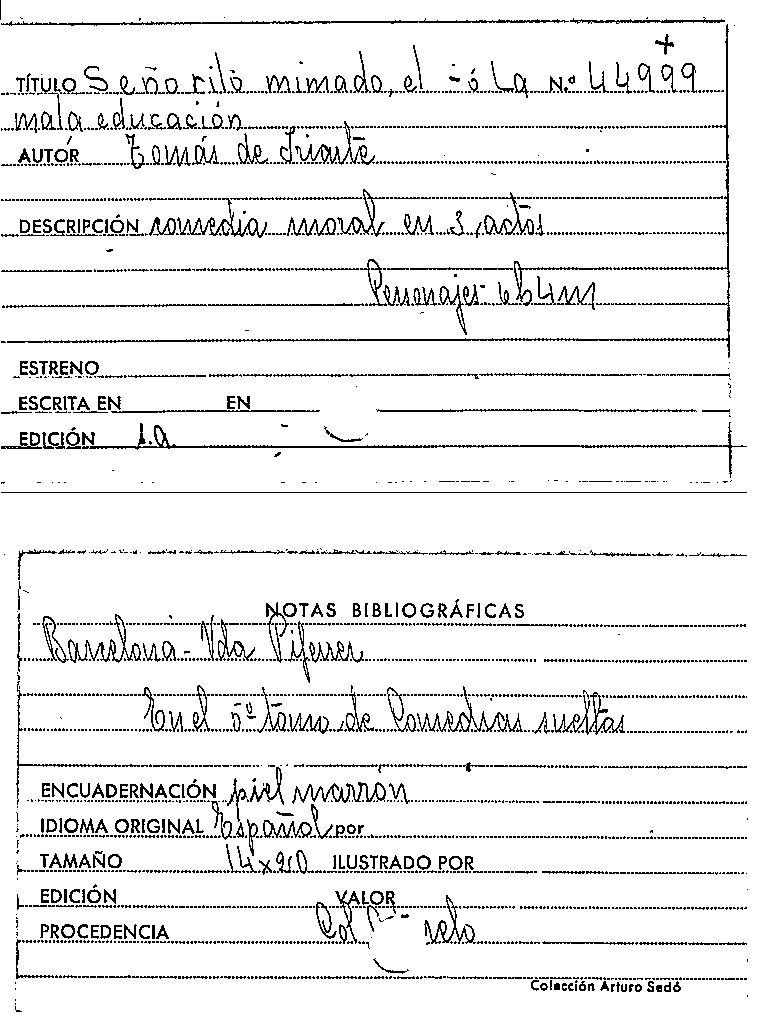 +
TÍTULO Señorito mimado, el - ó La N.º 44999
mala educación
AUTOR Tomás de Iriarte
DESCRIPCIÓN comedia moral en 3 actos
Personajes - 6h4m
ESTRENO
ESCRITA EN EN
EDICIÓN 1.a
NOTAS BIBLIOGRÁFICAS
Barcelona - Vda Piferrer
En el 5º tomo de Comedias sueltas
ENCUADERNACIÓN piel marrón
IDIOMA ORIGINAL Español por
TAMAÑO 14x20 ILUSTRADO POR
EDICIÓN VALOR
PROCEDENCIA Col
Colección Arturo Sedó